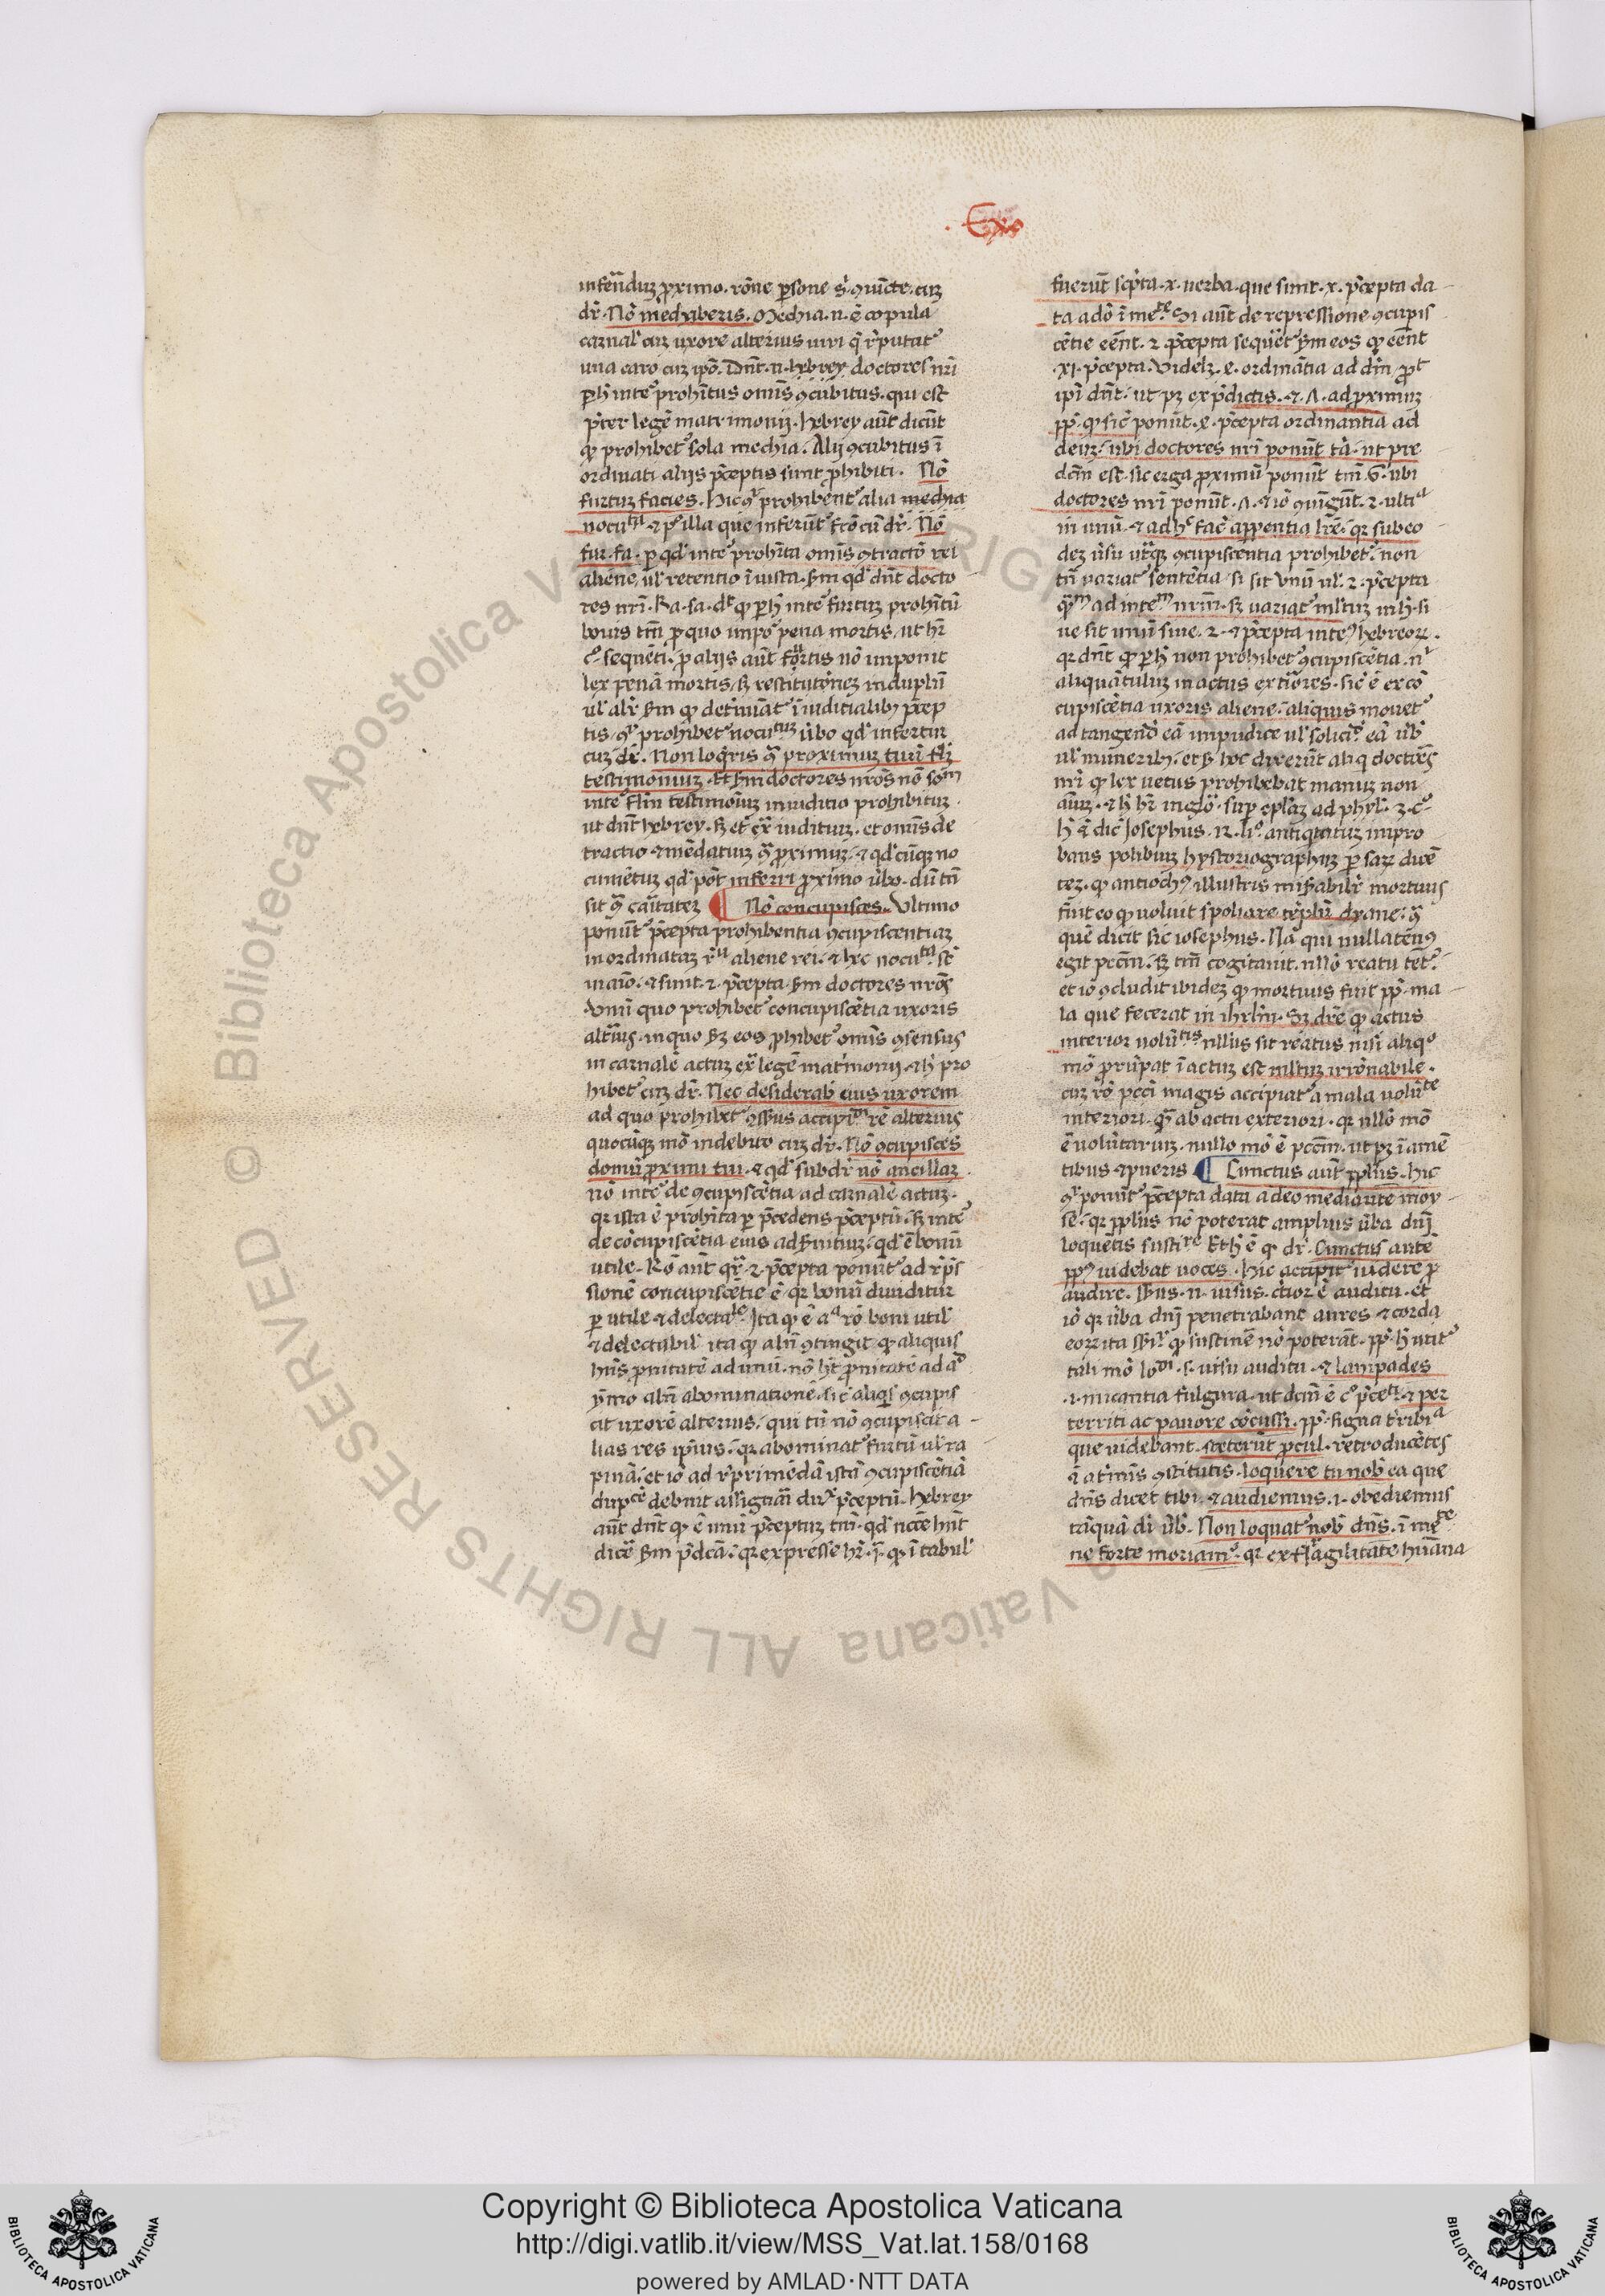 . Exo
inferendum proximo. rõne psone s. ꝯiũcte. cum
dr̃. Nõ mechaberis. Mechia. n. ẽ copula
carnal' cum uxore alterius uiri q̃ r̃putat᷑
una caro cum ipõ. Dñt. n. hebrey doctores nr̃i
ꝑ h̃ inte᷑ prohĩtus omĩs ꝯcubitus. qui est
p̃ter legẽ matrimonij. hebrey aũt dicũt
ꝙ prohibet᷑ sola mechia. Alij ꝯcubitus ĩ
ordinati alijs p̃ceptis sunt ꝓhibiti. Nõ
furtum facies. Hic prohibent᷑ alia
illa que inferũt᷑ cũ dr̃. Nõ
fur. fa. ꝑ qd' inte᷑ prohĩta omĩs ꝯtractõ rei
aliene, ul' retentio ĩiusta. ẜm qd' dñt docto
res nr̃i. Ra. sa. dt̃ ꝙ ꝑ h̃ inte᷑ furtum prohĩtũ
bouis tm̃ ꝓ quo impo᷑ pena mortis, ut hr̃
c̊ sequẽti. ꝓ alijs aũt nõ imponit
lex penã mortis, sꝫ restitutõnem in duplũ
ul' alr̃ ẜm ꝙ det̃minat᷑ ĩ iuditialibꝫ p̃cep
tis. prohibet᷑ nocumtum ũbo qd' infertur
cum dr̃. Non loq̃ris ꝯ̃ proximum tuũ fl̃m
testimonium. Et ẜm doctores nr̃os nõ som̃
inte᷑ fl̃m testimoĩum in iuditio prohibitum.
ut dñt hebrey. sꝫ et̃ ex̃ iuditium. et omĩs de
tractio ꝫ mẽdatium ꝯ̃ proximum. ꝫ qd'cũqꝫ no
cumẽtum qd' põt inferri proximo ũbo. dũ tñ
sit ꝯ̃ caritatem ¶ Nõ concupisces. Ultimo
ponũt᷑ p̃cepta prohibentia ꝯcupiscentiam
inordinatam aliene rei.
in aĩo. ꝫ sunt. 2. p̃cepta ẜm doctores nr̃os
Unũ quo prohibet᷑ concupiscẽtia uxoris
altĩus. in quo ẜm eos ꝓhibet᷑ omĩs ꝯsensus
in carnalẽ actum ex̃ legẽ matrĩmonij. ꝫ h̃ pro
hibet᷑ cum dr̃. Nec desiderab' eius uxorem
ad quo prohibet᷑ rẽ alterius
quocũqꝫ mõ indebito cum dr̃. Nõ ꝯcupisces
domũ proximi tui. ꝫ qd' subdr̃ nõ ancillam.
nõ inte᷑ de ꝯcupiscẽtia ad carnalẽ actum.
qꝛ ista ẽ prohĩta ꝑ p̃cedens p̃ceptũ. sꝫ inte᷑
de cõcupiscẽtia eius ad ẜuitium. qd' ẽ bonũ
utile. Rõ aũt qr̃. 2. p̃cepta ponũt᷑ ad r̃p̃s
sionẽ concupiscẽtie ẽ. qꝛ bonũ diuiditur
ꝑ utile ꝫ delectale. Ita ꝙ ẽ aa rõ boni util'
ꝫ delectabil' ita ꝙ alñ ꝯtingit ꝙ aliquis
hñs pronitatẽ ad unũ. nõ hꝫ pronitatẽ ad ad
ỹmo alñ abominationẽ. sic aliqs ꝯcupis
cit uxorẽ alterius. qui tñ nõ ꝯcupiscit a
lias res ipĩus. qꝛ abominat᷑ furtũ ul' ra
pinã. et iõ ad r̃primẽdã istã ꝯcupiscẽtiã
dupcẽ debuit assignari p̃ceptũ. hebrey
aũt dñt ꝙ ẽ unũ p̃ceptum tm̃. qd' ncc̃e hñt
dicẽ ẜm p̃dcã. qꝛ expresse hr̃. ꝙ ĩ tabul'
fuerũt scp̃ta. x. uerba. que sunt. x. p̃cepta da
ta a dõ Si aũt de repressione ꝯcupis
cẽtie eẽnt. 2. p̃cepta sequer̃t᷑ ẜm eos ꝙ eẽnt
xi. p̃cepta. Videlꝫ. ordinãtia ad dm̃ ꝓt
ipĩ dñt. ut pꝫ ex p̃dictis. ad proximum
pp̃. ꝙ sic ponũt. p̃cepta ordinantia ad
deum. ubi doctores nr̃i ponũt tã. ut pre
dcm̃ est. sic erga proximũ ponũt tm̃ 6. ubi
doctores nr̃i ponũt. ꝫ iõ ꝯiũgũt. 2. ultia
in unũ. ꝫ ad hc̃ fac̃ apparentia lr̃e. qꝛ sub eo
dem ũsu utraqꝫ ꝯcupiscentia prohibet᷑. non
tñ uariat᷑ sentẽtia, si sit unũ ul'. 2. p̃cepta
ad intem nr̃m. sꝫ uariat᷑ ml̃tum in h̃. si
ue sit unũ siue. 2. p̃cepta hebreoꝝ.
qꝛ dñt ꝙ ꝑ h̃ non prohibet᷑ ꝯcupiscẽtia. ni
aliquãtulum in actus extiõres. sic ẽ ex cõ
cupiscẽtia uxoris aliene. aliquis mouet᷑
ad tangend̃ eã impudice ul' eã ũb'
ul' muneribꝫ. et hoc dixerũt aliq̃ doctõrs
nr̃i ꝙ lex uetus prohibebat manum non
aĩum. ꝫ h̃ hr̃ in glo. suꝑ epl̃am ad phyl'. 3. c̊
dic̃ Josephus. 12. li. antiqtatum impro
bans polibium hystoriographum ꝑsarꝝ dicẽ
tem. ꝙ antiochꝰ illustris miẜabilr̃ mortuus
fuit eo ꝙ uoluit spoliare tẽplũ dyane. ꝯ̃
quẽ dicit sic iosephus. Nã qui nullatẽnꝰ
egit pccm̃. sꝫ tm̃ cogitauit. nllõ reatu tẽt᷑.
et iõ ꝯcludit ibidem ꝙ mortuus fuit pp̃. ma
la que fecerat in ihrl̃m. Sꝫ dr̃e ꝙ actus
interior uolũtis nllus sit reatus nisi aliqo
mõ prũpat ĩ actum est ml̃tum irrõnabile.
cum rõ pccĩ magis accipiat᷑ a mala uolũte
interiori. q̃ ab actu exteriori. qꝛ nllõ mõ
ẽ uolũtarium. nullo mõ ẽ pccm̃. ut pꝫ ĩ amẽ
tibus ꝫ pueris ¶ Cunctus aũt ppl̃us. Hic
ponũt᷑ p̃cepta data a deo mediante moy
se. qꝛ ppl̃us nõ poterat amplius ũba dnĩ
loquẽtis sustire Et h̃ ẽ ꝙ dr̃. Cunctus autẽ
ppꝰ uidebat uoces. Hic accipit᷑ uidere ꝓ
audire. uisus. cĩor ẽ auditu. et
iõ qꝛ ũba dnĩ penetrabant aures ꝫ corda
eoꝝ ita ꝙ sustinẽ nõ poterãt. pp̃. h̃ utit᷑
tali mõ uisu auditu. ꝫ lampades
.i. micantia fulgura. ut dcm̃ ẽ c̊ p̃ceti. ꝫ per
territi ac pauore cõcussi. pp̃. signa t̃ribia
que uidebant. steterũt ꝓcul. retroducẽtes
ĩ at̃mis ꝯstitutis. loquere tu nob' ea que
dñs dicet tibi. ꝫ audiemus. i. obediemus
tãquã di ũb'. Non loquat᷑ nob' dñs. ĩ mete
ne forte moriam᷑. qꝛ ex fragilitate hũana
Copyright © Biblioteca Apostolica Vaticana
http://digi.vatlib.it/view/MSS_Vat.lat.158/0168
powered by AMLAD·NTT DATA
BIBLIOTECA APOSTOLICA VATICANA
BIBLIOTECA APOSTOLICA VATICANA
© Biblioteca Apostolica Vaticana ALL RIGHTS RESERVED